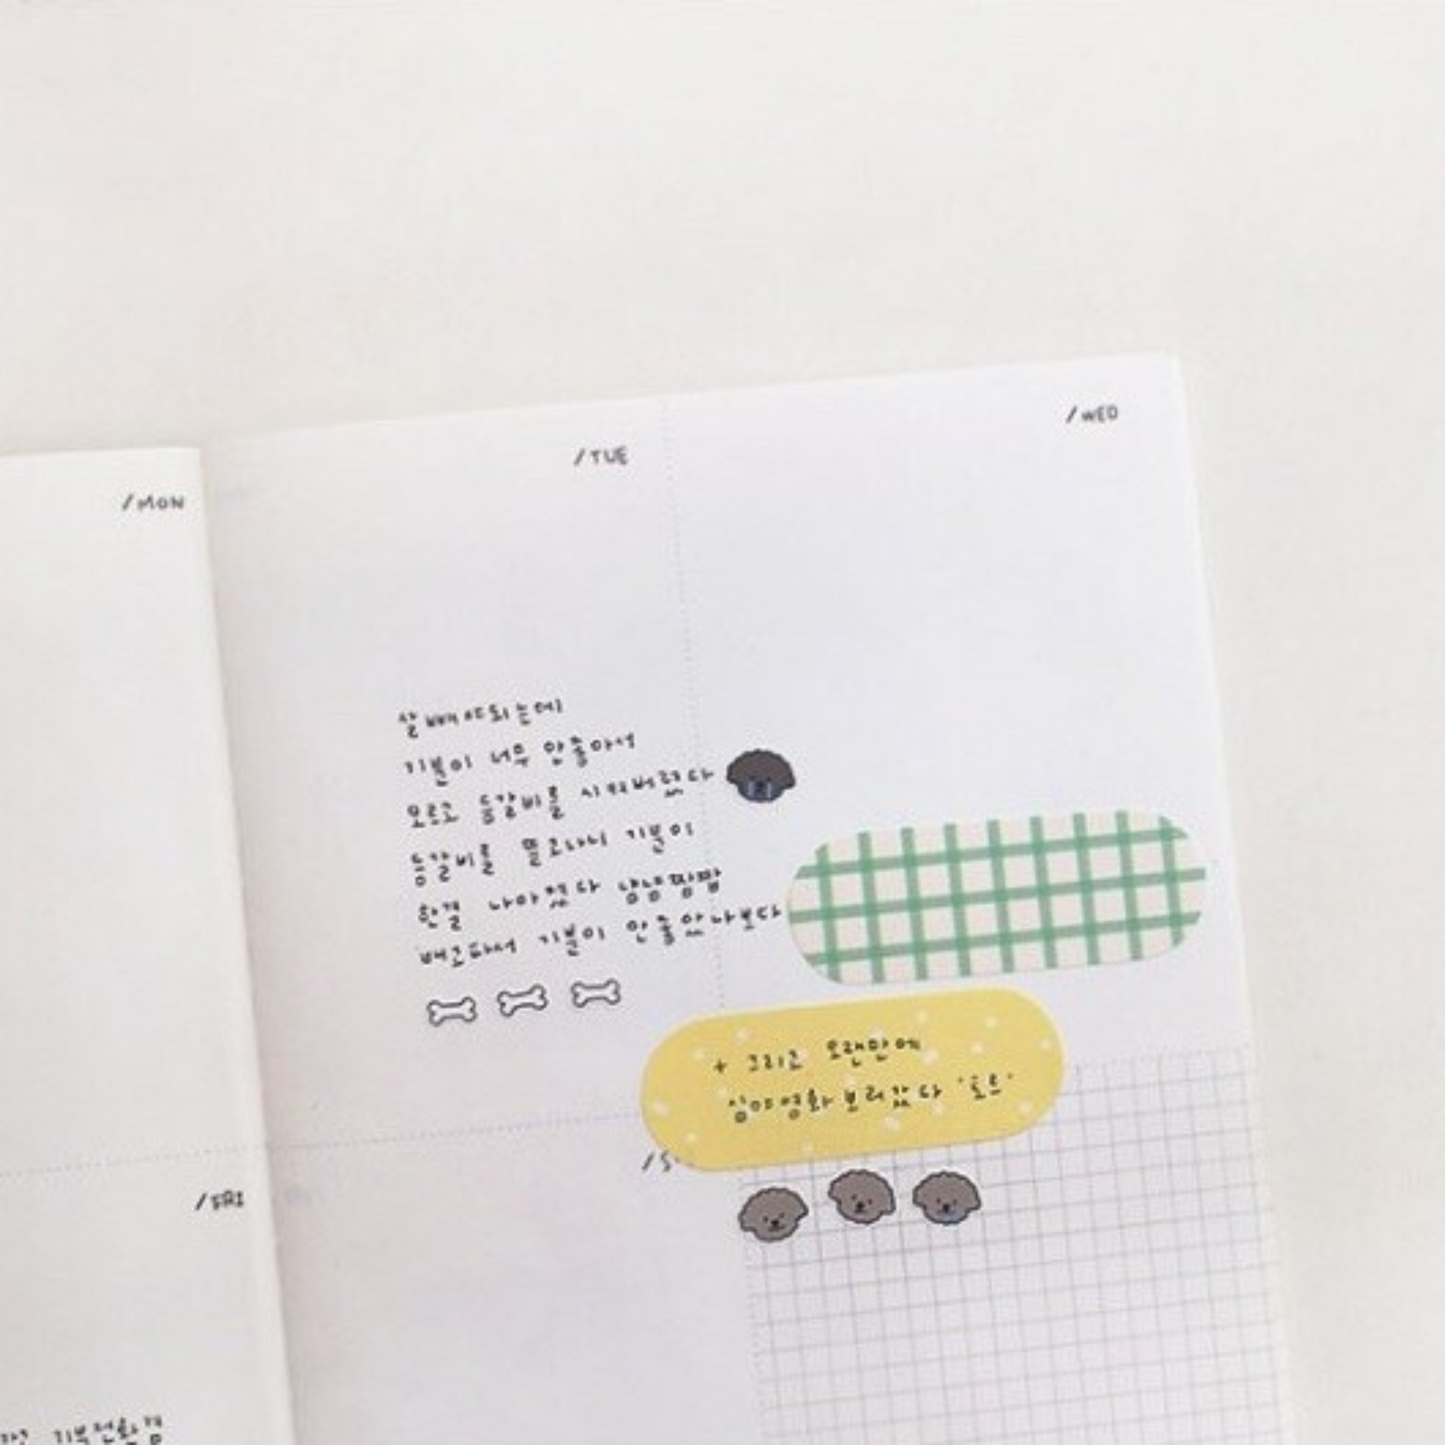 /MON
/TUE
/WED
살빼야되는데
기분이 너무 안좋아서
모르고 등갈비를 시켜버렸다
등갈비를 뜯고나니 기분이
한결 나아졌다 냠냠짭짭
배고파서 기분이 안좋았나보다
+ 그리고 오랜만에
심야영화 보러갔다 '호프'
/S
/FRI
기분전환겸